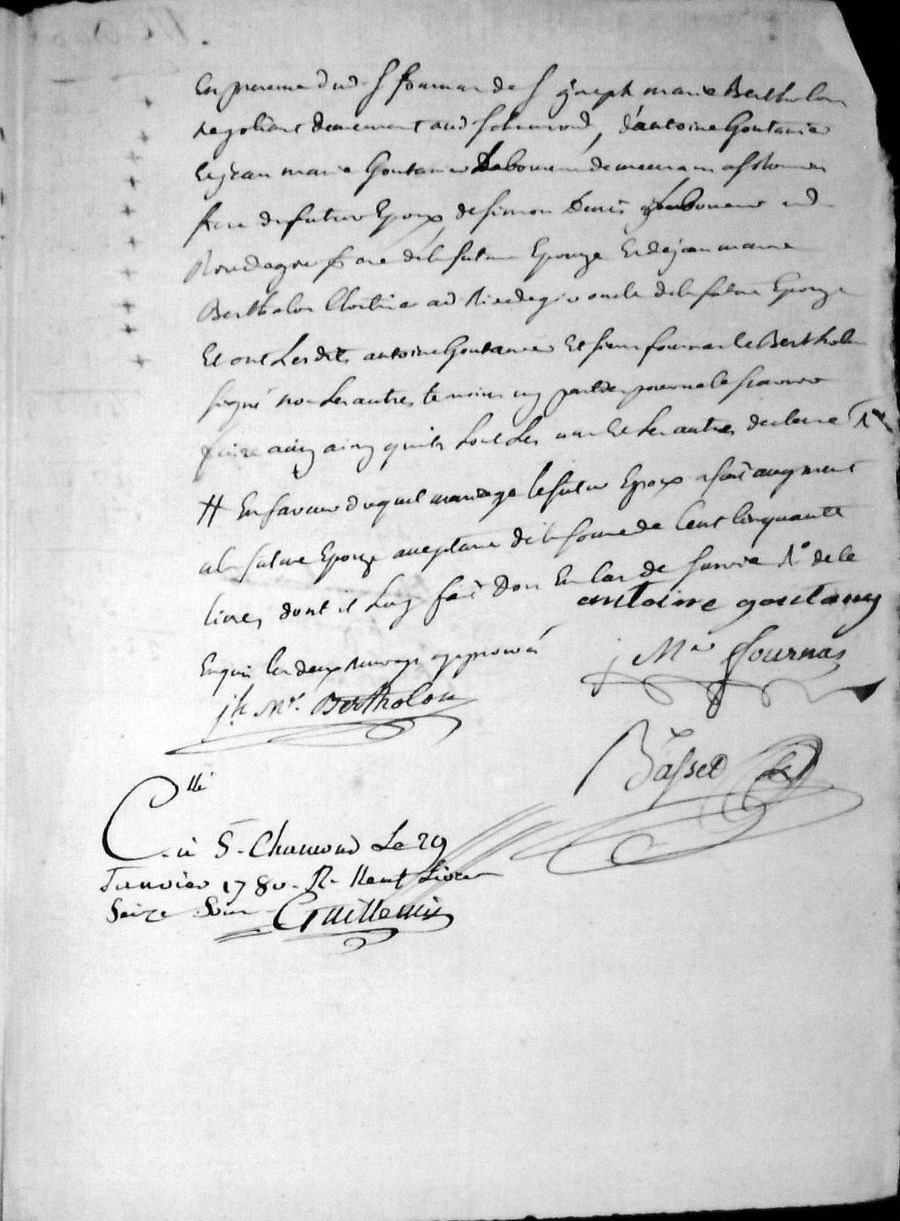 En presence dud S fournas de S joseph marie Bertholon
negotiant demeurant aud St chamond, d'antoine Goutanier
et jean marie Goutanier Laboureur demeurans a
frere du futur Epoux, de Simon Denis Laboureur
frere de la future Epouze Et de jean marie
Bertholon Cloutier oncle de la future Epouze
Et ont Lesdits antoine Goutanier Et sieur fournas Le Berthol
signé non Les autres temoins ny parties pour ne le scavoir
faire ainsy qu'ils L'ont Les uns Et Les autres declaré
# En faveur duquel mariage le futur Epoux a fait augment
a la future Epouze acceptante de la somme de Cent Cinquante
livres dont il Luy fait Don En Cas de Survie
antoine goutany
les deux renvoys approuvés
j Mie ffournas
jh Mie Bertholon
Basset
Cllé
à St Chamond Le 29
Janvier 1780 R. Neuf Livres
Seize Sous Guillemin